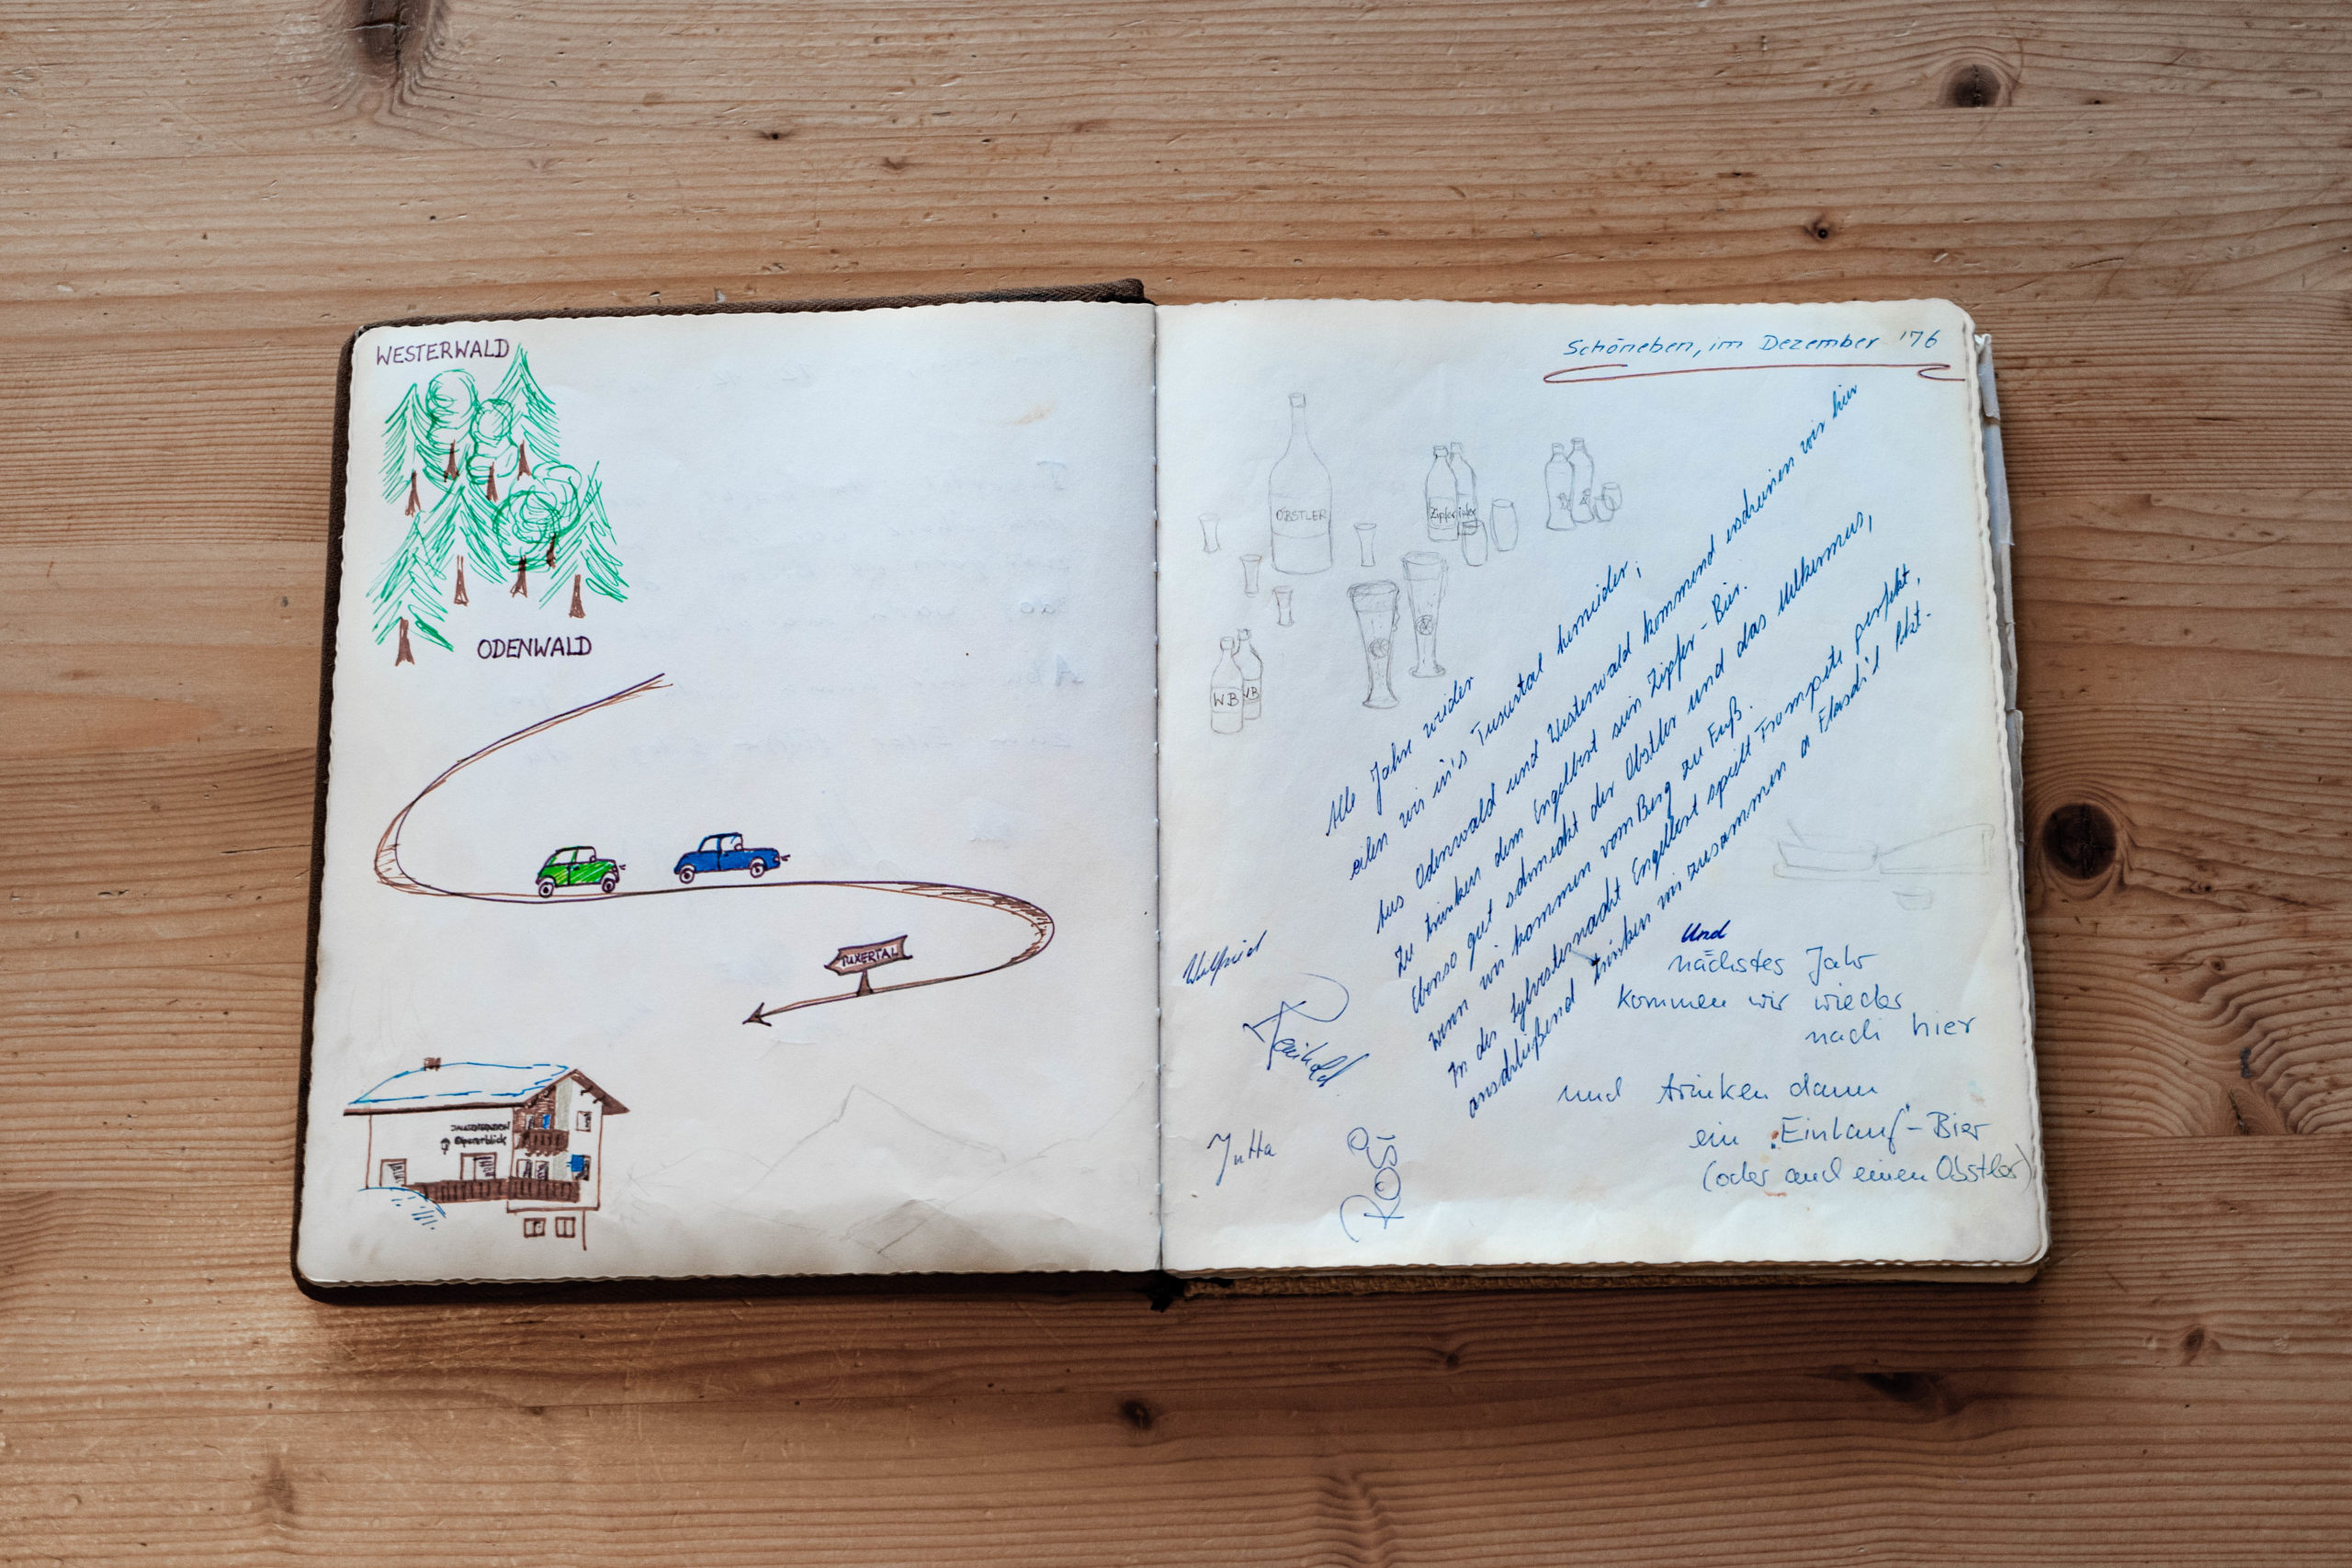 WESTERWALD
ODENWALD
TUXERTAL
JAUSENSTATION
Schöneben, im Dezember '76
OBSTLER
Zipfer
WB
WB
Alle Jahre wieder
eilen wir in's Tuxertal hernieder,
Aus Odenwald und Westerwald kommend erscheinen wir hier
Zu trinken dem Engelbert sein Zipfer-Bier.
Ebenso gut schmeckt der Obstler und das Melkermus,
wenn wir kommen vom Berg zu Fuß.
In der Sylvesternacht Engelbert spielt Trompete perfekt,
anschließend trinken wir zusammen a Flascherl Sekt.
Und
nächstes Jahr
kommen wir wieder
nach hier
und trinken dann
ein "Einlauf"-Bier
(oder auch einen Obstler)
Wilfried
Reinhold
Jutta
ROSI